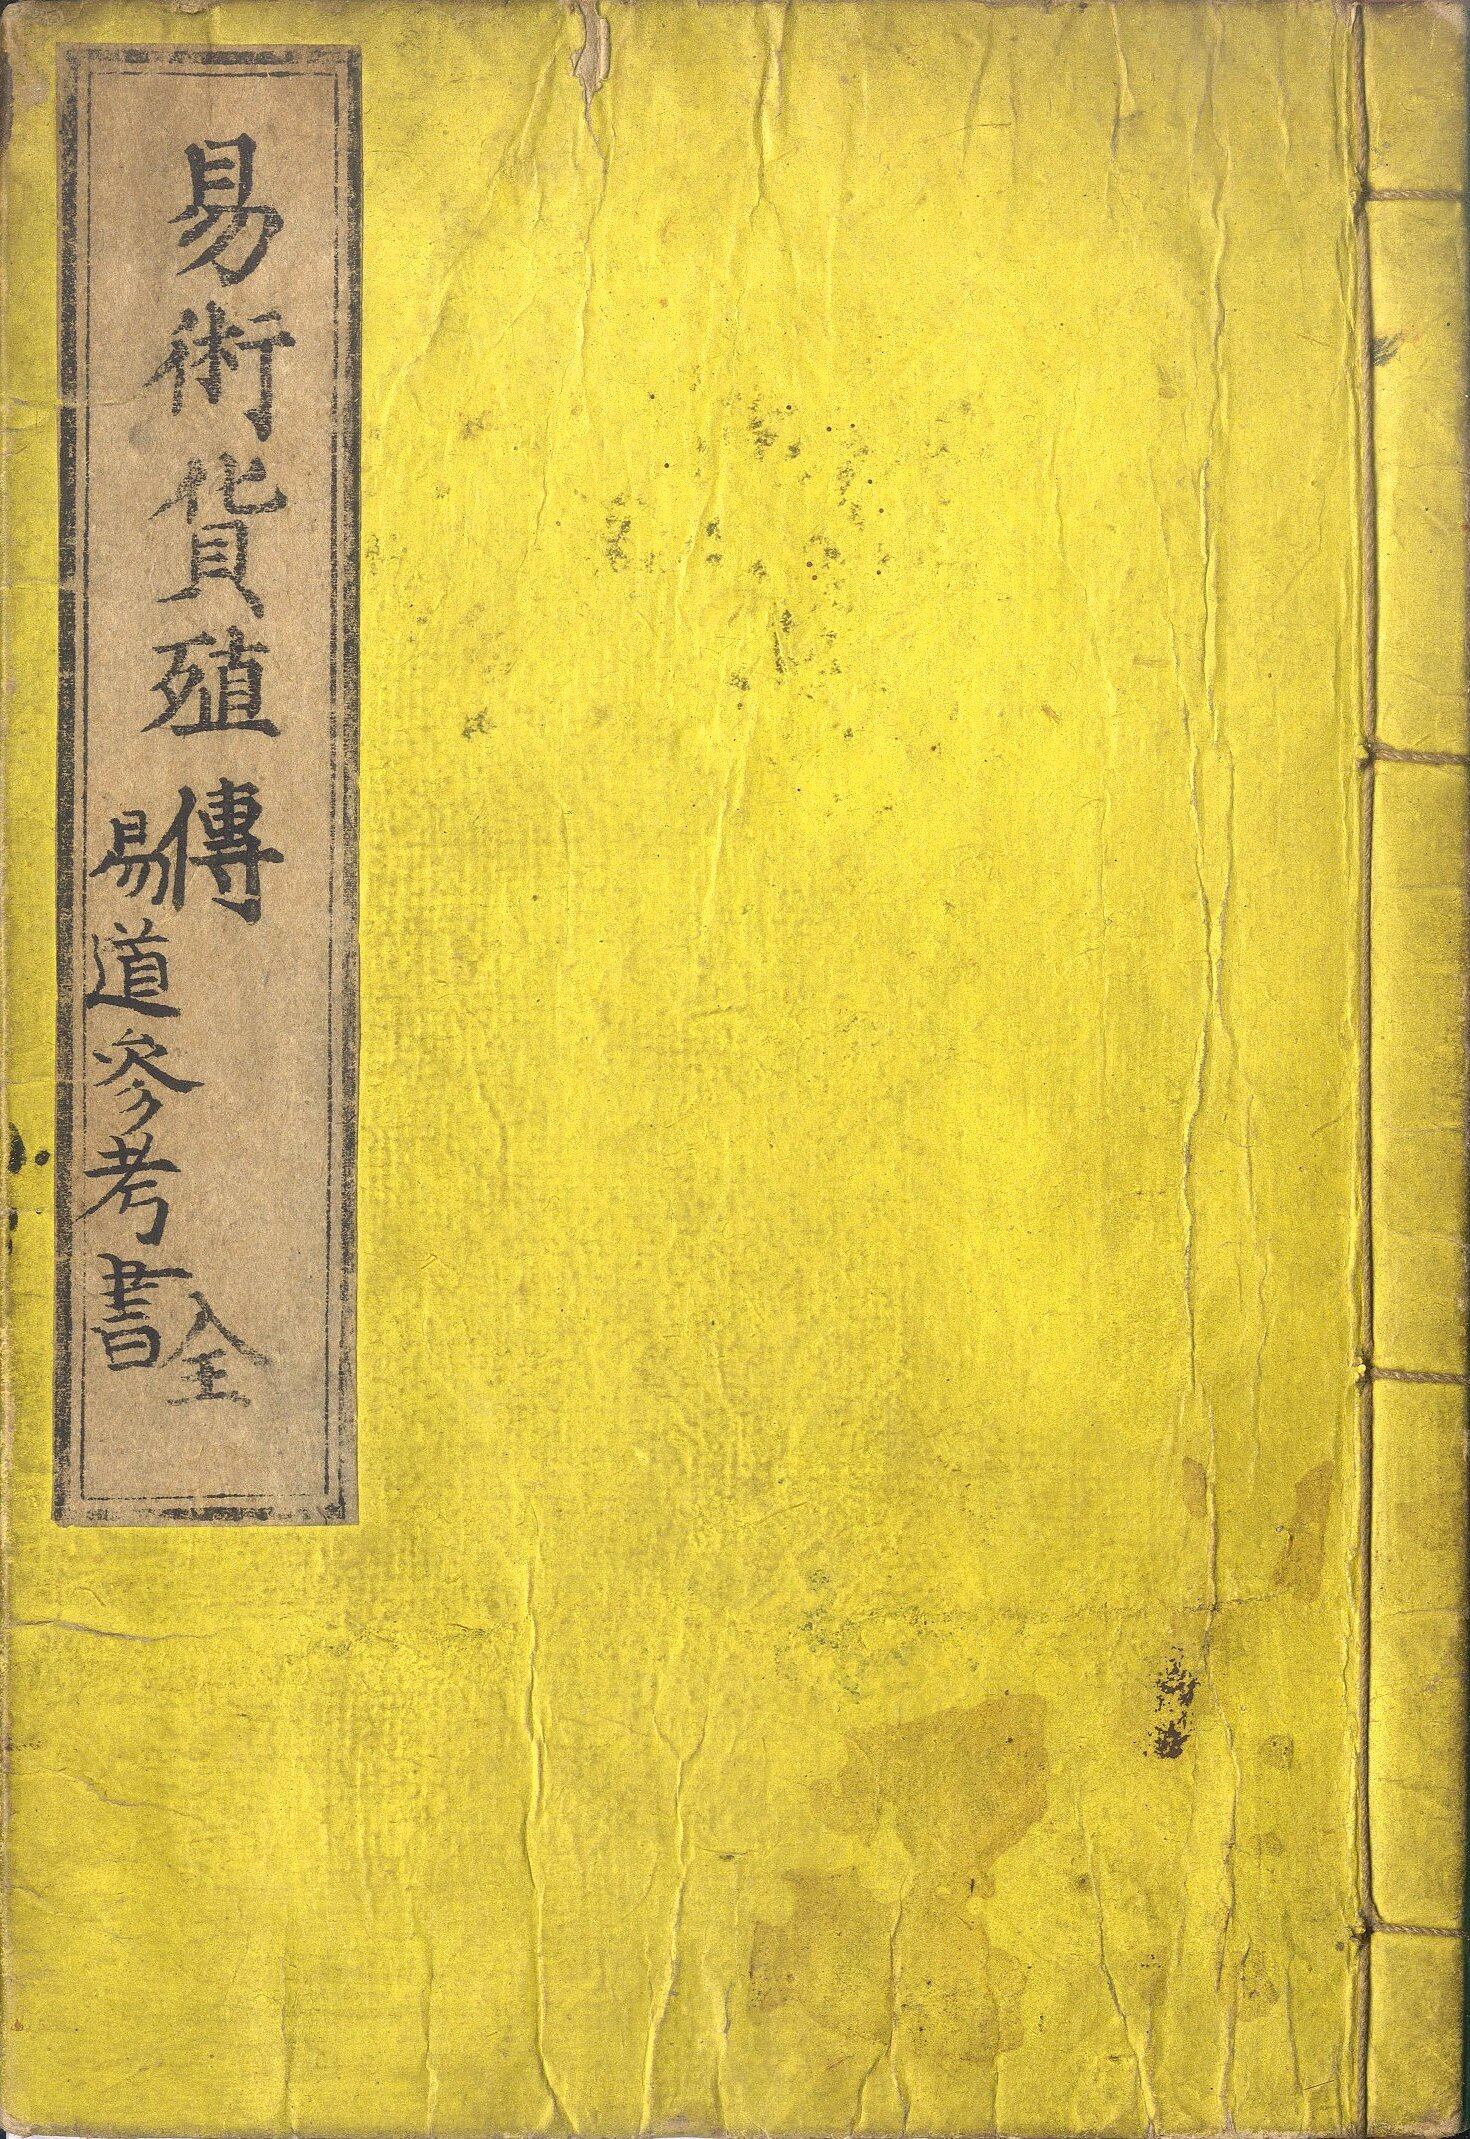 易術貨殖傳 全
易道参考書